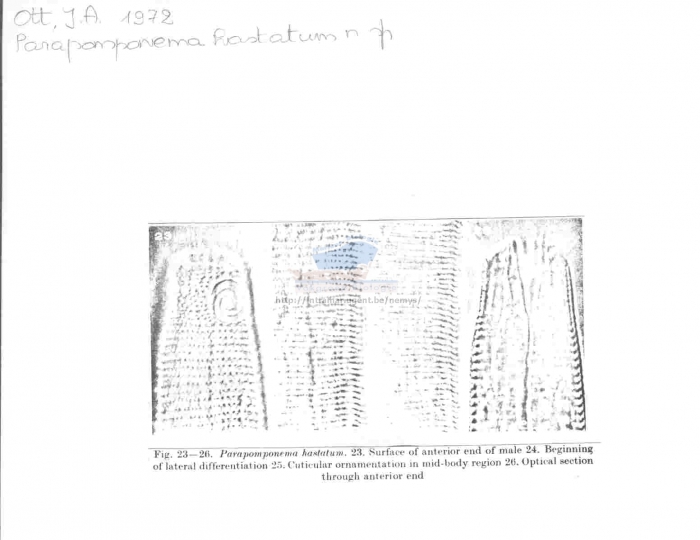 Ott, J.A. 1972
Parapomponema hastatum n sp
23
http://intramar.ugent.be/nemys/
Fig. 23—26. Parapomponema hastatum. 23. Surface of anterior end of male 24. Beginning
of lateral differentiation 25. Cuticular ornamentation in mid-body region 26. Optical section
through anterior end